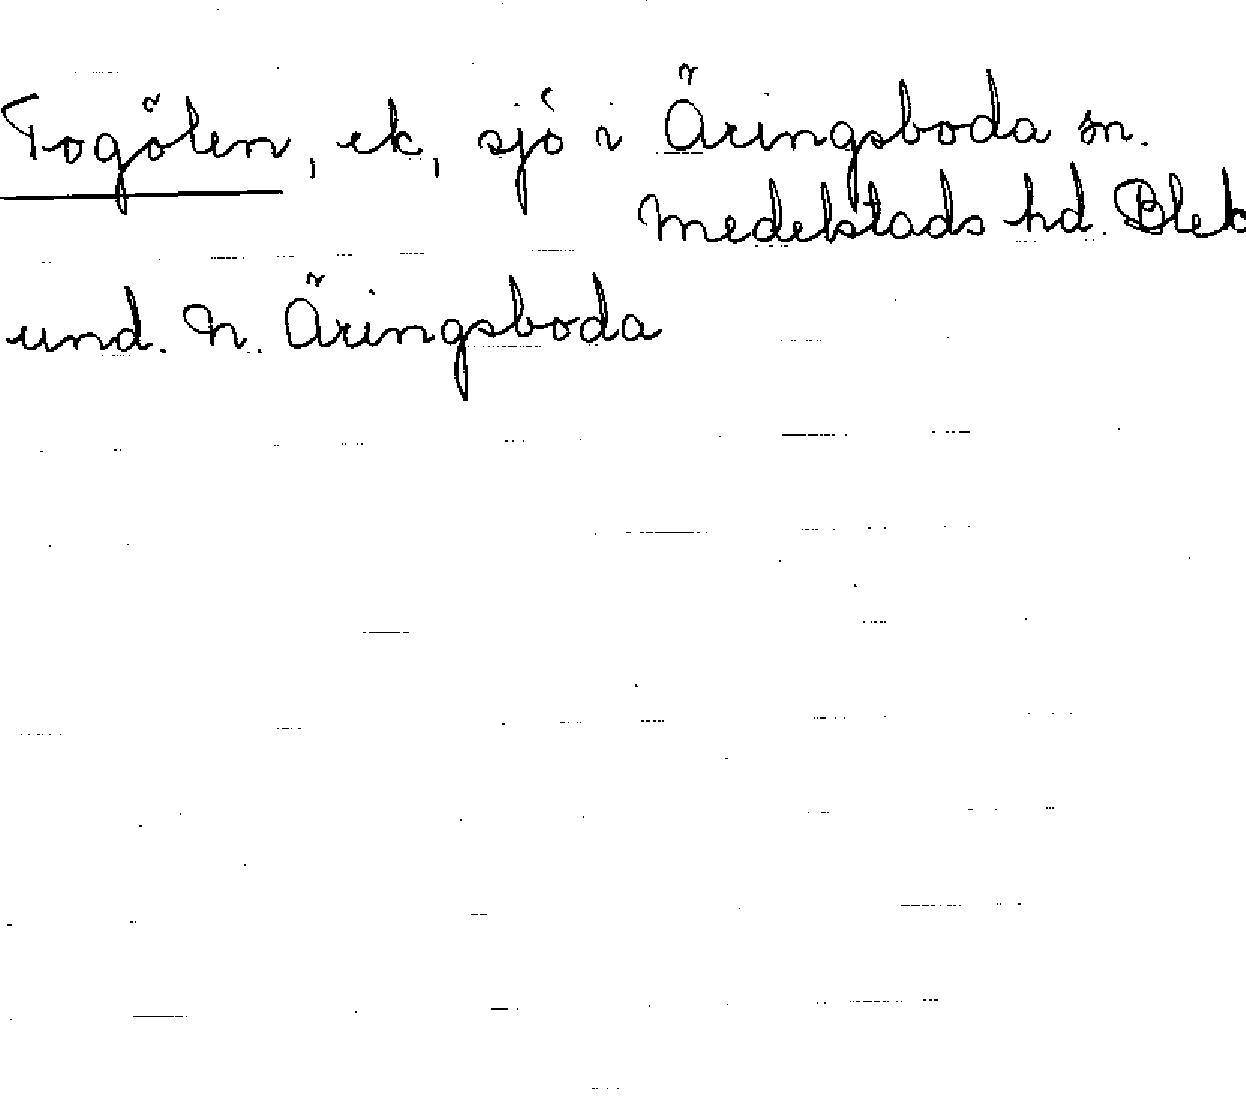 Togölen, ek, sjö i Äringsboda sn.
Medelstads hd. Blek
und. N. Äringsboda